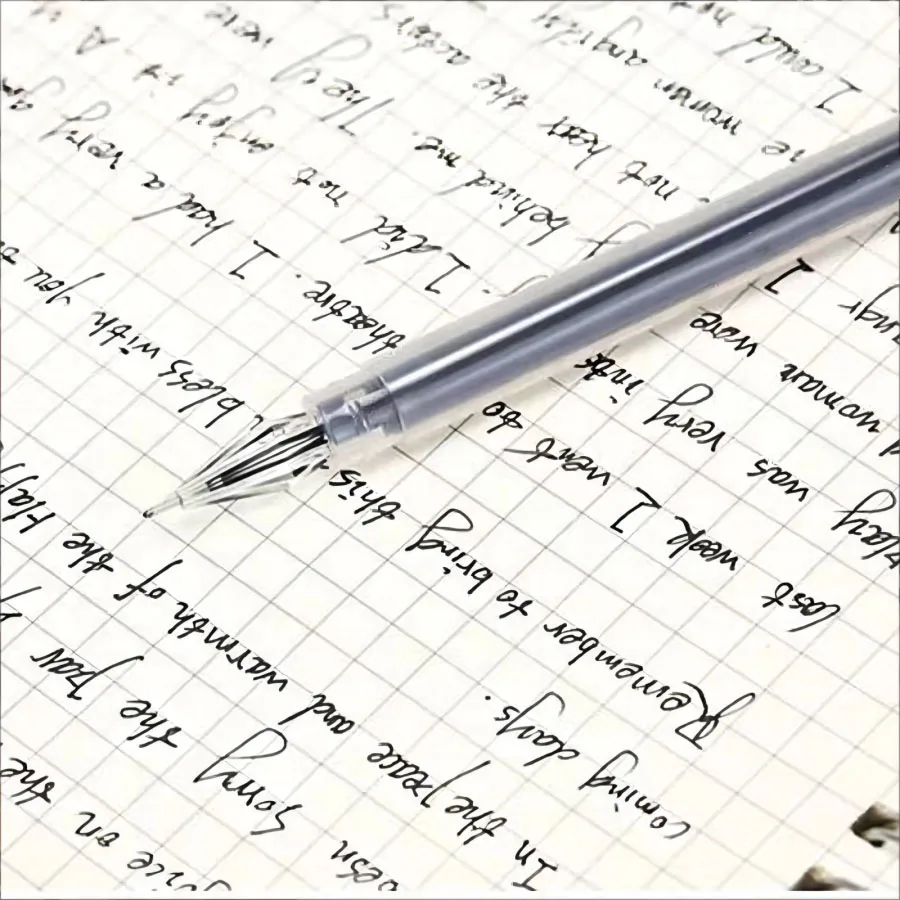 on the
Sorry the
In the peace and warmth of the
coming days.
Remember to bring this bless with you
last week I went to theatre. I had a very
play was very I did not enjoy it. A
woman were behind me. They were
I not hear the actors
woman angrily
I could not